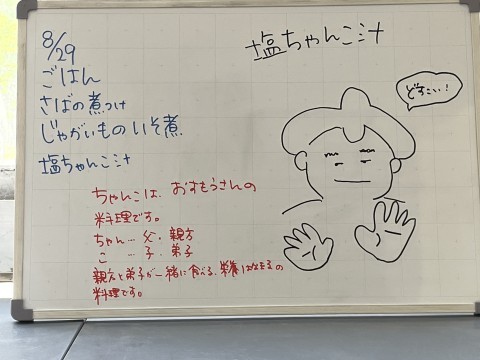 8/29
ごはん
さばの煮つけ
じゃがいものいそ煮
塩ちゃんこ汁
塩ちゃんこ汁
どすこい!
ちゃんこは、おすもうさんの
料理です。
ちゃん…父・親方
こ…子・弟子
親方と弟子が一緒に食べる、栄養
料理です。